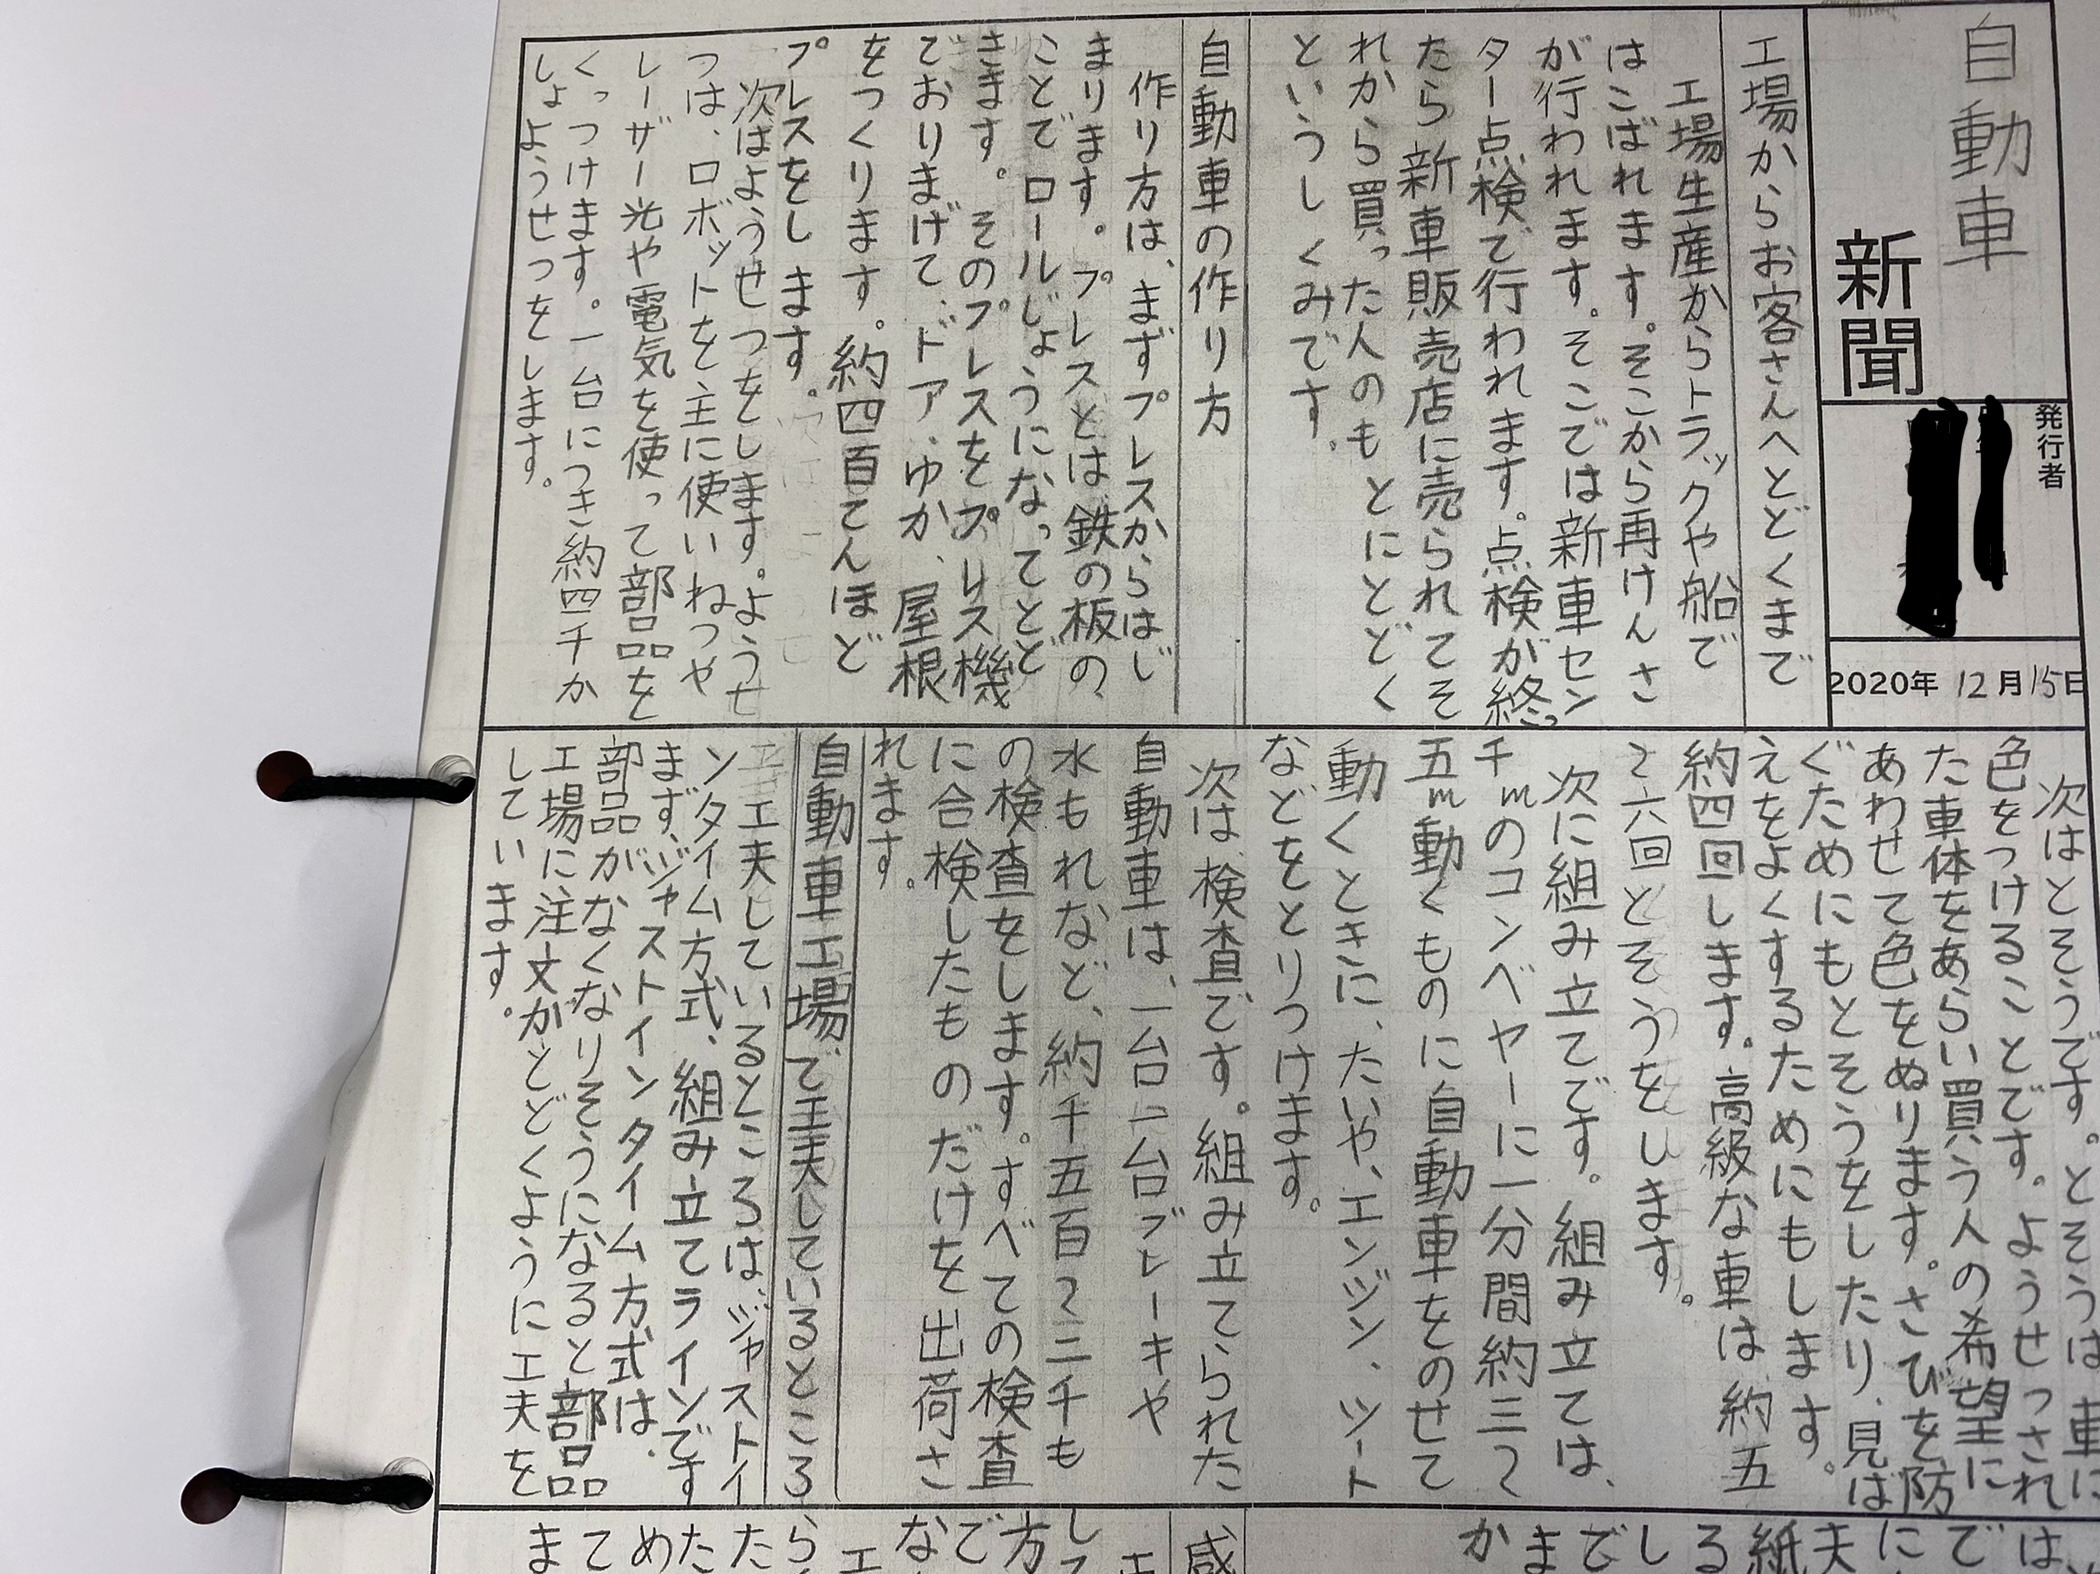 自動車
新聞
発行者
2020年12月15日
工場からお客さんへとどくまで
工場生産からトラックや船で
はこばれます。そこから再けんさ
が行われます。そこでは新車セン
ター点検で行われます。点検が終っ
たら新車販売店に売られてそ
れから買った人のもとにとどく
というしくみです。
自動車の作り方
作り方は、まずプレスからはじ
まります。プレスとは鉄の板の、
ことでロールじょうになってとど
きます。そのプレスをプレス機
でおりまげて、ドア、ゆか、屋根
をつくります。約四百てんほど
プレスをします。
次はようせつをします。ようせ
つは、ロボットを主に使いねつや
レーザー光や電気を使って部品を
くっつけます。一台につき約四千か
しょようせつをします。
次はとそうです。とそうは車に
色をつけることです。ようせつされ
た車体をあらい買う人の希望に
あわせて色をぬります。さびを防
ぐためにもとそうをしたり、見ば
えをよくするためにもします。
約四回します。高級な車は約五
〜六回とそうをします。
次に組み立てです。組み立ては、
千mのコンベヤーに一分間約三〜
五m動くものに自動車をのせて
動くときに、たいや、エンジン、シート
などをとりつけます。
次は検査です。組み立てられた
自動車は、一台一台ブレーキや
水もれなど、約千五百〜二千も
の検査をします。すべての検査
に合検したものだけを出荷さ
れます。
自動車工場で工夫しているところ
工夫しているところは、ジャストイ
ンタイム方式、組み立てラインです
まず、ジャストインタイム方式は、
部品がなくなりそうになると部品
工場に注文がとどくように工夫を
しています。